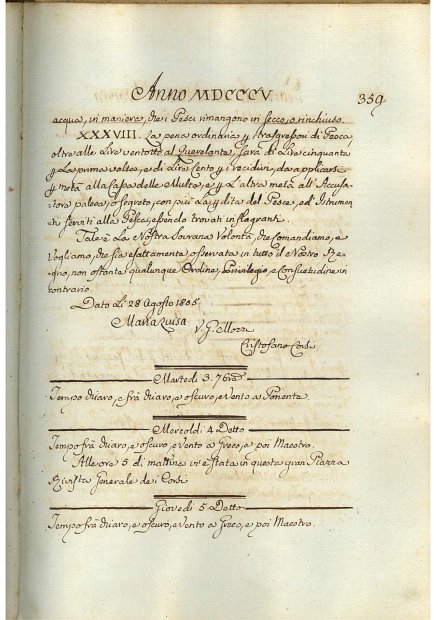 Anno MDCCCV. 359
acqua, in maniera, che i Pesci rimangono in secco, o rinchiuso.
XXXVIII. La pena ordinaria p i trasgressori di Pesca,
oltre alle Lire ventotto al Querelante, sarà di Lire cinquanta
p La prima volta, e di Lire Cento p i recidivi, da applicarsi
p metà alla Cassa delle Multe, e p L'altra metà all'Accusa-
tore palese, o segreto, con più La perdita del Pesce, ed Istrumen-
ti serviti alla Pesca, essendo trovati in flagranti.
Tale è La Nostra Sovrana Volontà, che Comandiamo, e
Vogliamo, che sia esattamente osservata in tutto il Nostro Re-
gno, non ostante qualunque Ordine, Privilegio, e Consuetudine in
contrario.
Dato Li 28 Agosto 1805.
Maria Luisa
V. G. Mozzi
Cristofano Corsi
Martedì 3. 7bre
Tempo chiaro, e frà chiaro, e oscuro, e vento a Ponente.
Mercoldì 4 Detto
Tempo frà chiaro, e oscuro, e vento a Greco, e poi Maestro.
Alle ore 5 di mattina vi è stata in questa gran Piazza
Rivista Generale dei Corsi
Giovedì 5 Detto
Tempo frà chiaro, e oscuro, e vento a Greco, e poi Maestro.